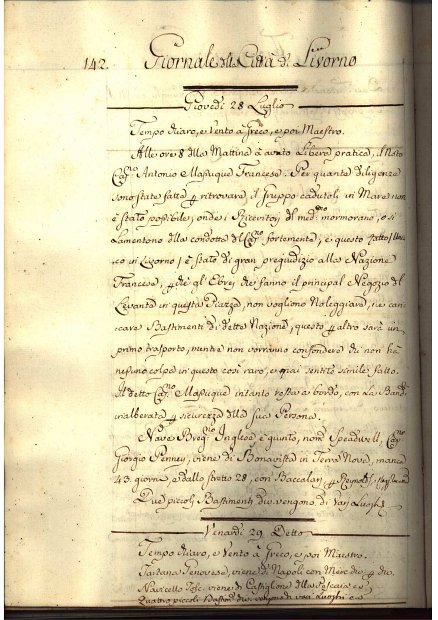 142. Giornale della Città di Livorno
Giovedì 28 Luglio
Tempo chiaro, e Vento à Greco, e poi Maestro.
Alle ore 8 della Mattina à avuto Libera pratica, il Noto
Capno Antonio Masuque Francese. Per quante diligenze
sono state fatte p ritrovare il Gruppo cadutoli in Mare non
è stato possibile, onde i Ricevitori del medmo mormorano, o si
Lamentono della condotta del Capno fortemente, e questo fatto /
co in Livorno / è stato di gran pregiudizio alla Nazione
Francese, p che gl'Ebrei che fanno il principal Negozio del
Levante in questa Piazza, non vogliono Noleggiare, ne cari
care Bastimenti di detta Nazione, questo p altro sarà un
primo trasporto, mentre non vorranno confondere chi non hà
nessuna colpa in questo così raro, e mai sentito simile fatto.
Il detto Capno Masuque intanto resta a bordo, con la Band
inalberata p sicurezza della sua Persona.
Nave Bregno Inglese è giunto, nomto Speadwell, Capno
Giorgio Penney, viene di Bonavista in Terra Nova, manca
43. giorni, e dallo stretto 28, con Baccalari p
Due piccoli Bastimenti div. vengono di varj Luoghi
Venardì 29 Detto
Tempo chiaro, e Vento à Greco, e poi Maestro.
Tartana Genovese, viene di Napoli con Merc div. p div.
Navicello Tosc. viene di Castiglione della Pescaia
Quattro piccoli Bastim div. vengono di vari Luoghi